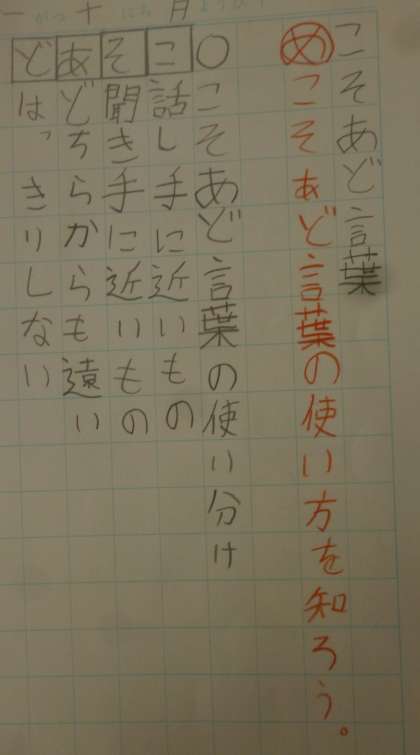 一がつ十にち月ようび
こそあど言葉
めこそあど言葉の使い方を知ろう。
○こそあど言葉の使い分け
こ話し手に近いもの
そ聞き手に近いもの
あどちらからも遠い
どはっきりしない